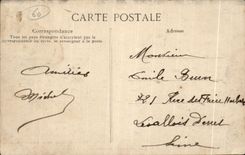 CARTE POSTALE
Correspondance
Tous les pays étrangers n'acceptent pas la
correspondance au recto, se renseigner à la poste.
Adresse
Amitiés
Michel
Monsieur
Emile
121 Rue des
Levallois Perret
Seine